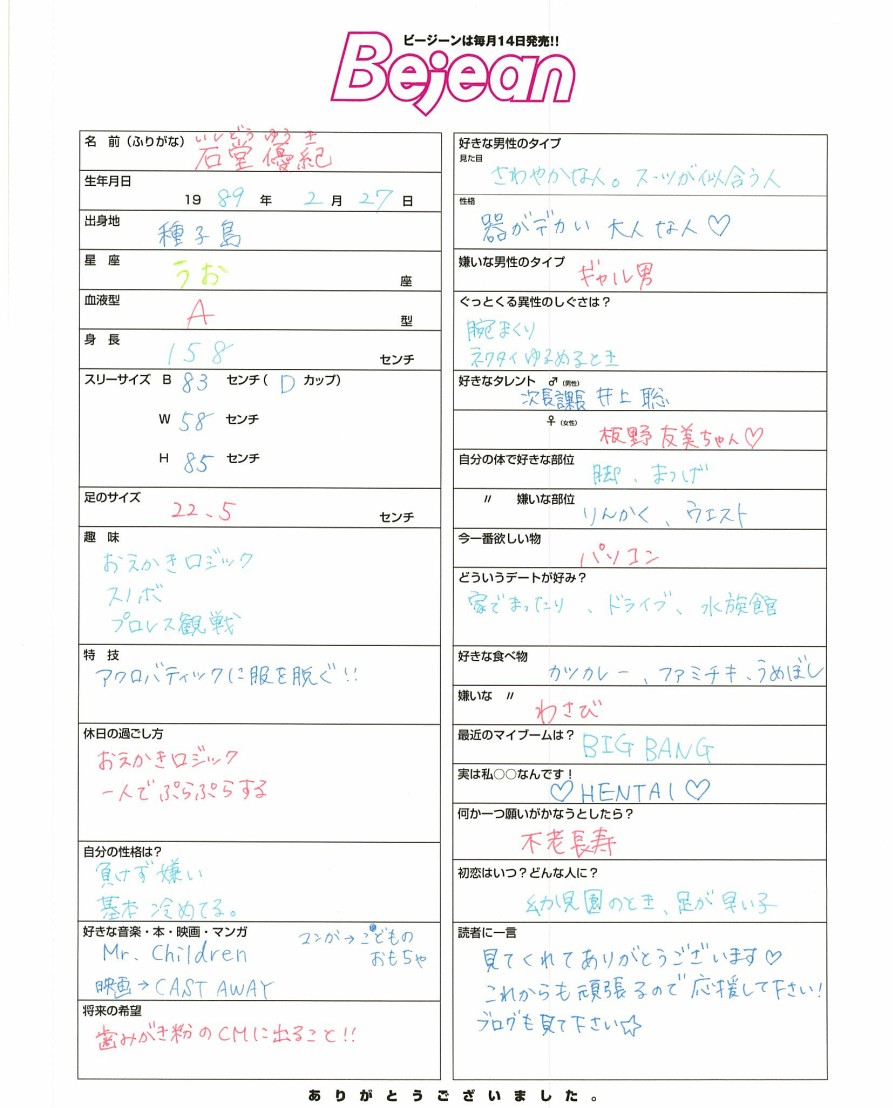 ビージーンは毎月14日発売!!
Bejean
名 前（ふりがな） いしどう ゆうき
石堂 優紀
生年月日
19 89 年 2 月 27 日
出身地
種子島
星 座
うお 座
血液型
A 型
身 長
158 センチ
スリーサイズ B 83 センチ( D カップ)
W 58 センチ
H 85 センチ
足のサイズ
22.5 センチ
趣 味
おえかきロジック
スノボ
プロレス観戦
特 技
アクロバティックに服を脱ぐ!!
休日の過ごし方
おえかきロジック
一人でぷらぷらする
自分の性格は?
負けず嫌い
基本冷めてる。
好きな音楽・本・映画・マンガ
Mr. Children
マンガ→こどものおもちゃ
映画→CAST AWAY
将来の希望
歯みがき粉のCMに出ること!!
好きな男性のタイプ
見た目
さわやかな人。スーツが似合う人
性格
器がデカい 大人な人♡
嫌いな男性のタイプ
ギャル男
ぐっとくる異性のしぐさは?
腕まくり
ネクタイゆるめるとき
好きなタレント ♂(男性)
次長課長 井上 聡
♀(女性)
板野 友美ちゃん♡
自分の体で好きな部位
脚、まつげ
〃 嫌いな部位
りんかく、ウエスト
今一番欲しい物
パソコン
どういうデートが好み?
家でまったり、ドライブ、水族館
好きな食べ物
カツカレー、ファミチキ、うめぼし
嫌いな 〃
わさび
最近のマイブームは?
BIG BANG
実は私○○なんです!
♡HENTAI♡
何か一つ願いがかなうとしたら?
不老長寿
初恋はいつ?どんな人に?
幼児園のとき、足が早い子
読者に一言
見てくれてありがとうございます♡
これからも頑張るので応援して下さい!
ブログも見て下さい☆
ありがとうございました。